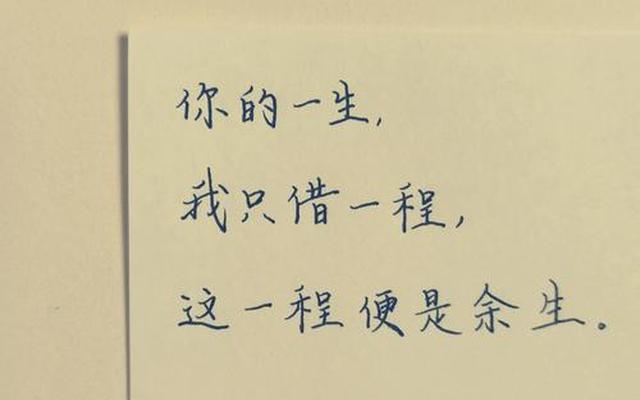 你的一生,
我只借一程,
这一程便是余生。